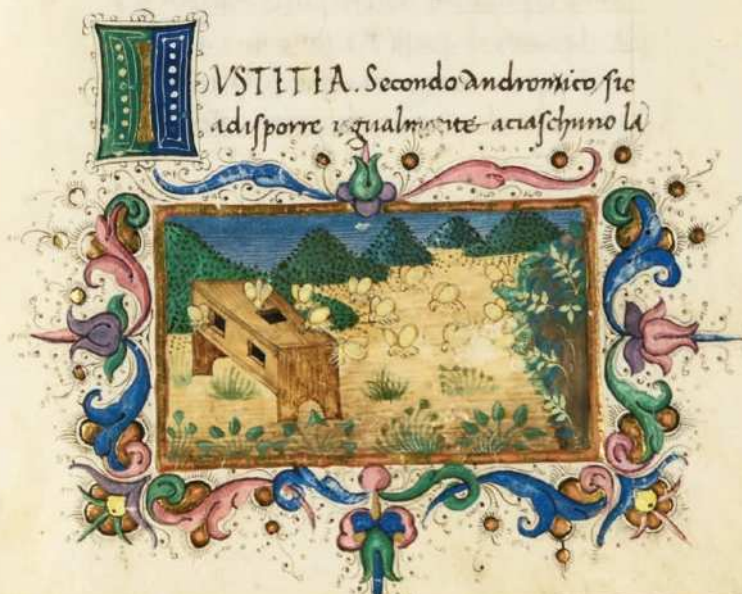 IVSTITIA. Secondo Andronico, sie
a disporre igualmente aciaschuno la